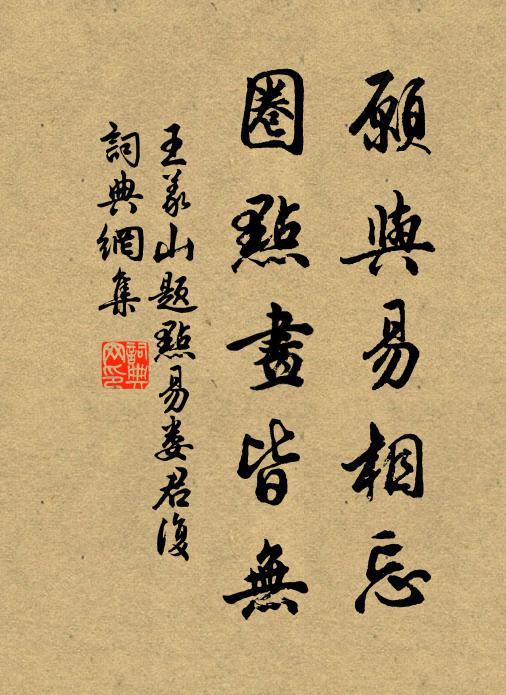 願與易相忘
圈點畫皆無
王義山題點易婁君復
詞典網集
詞典
网印